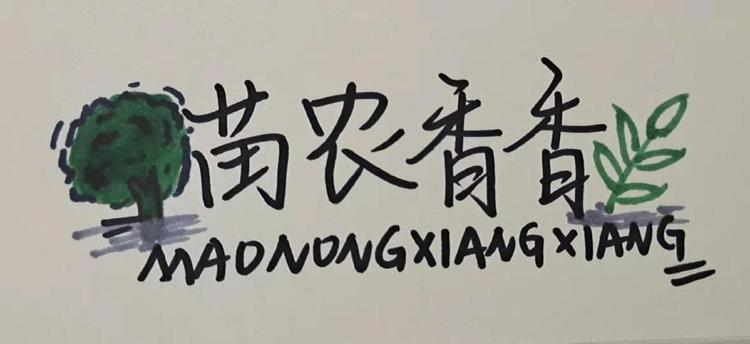 苗农香香
MAONONGXIANGXIANG